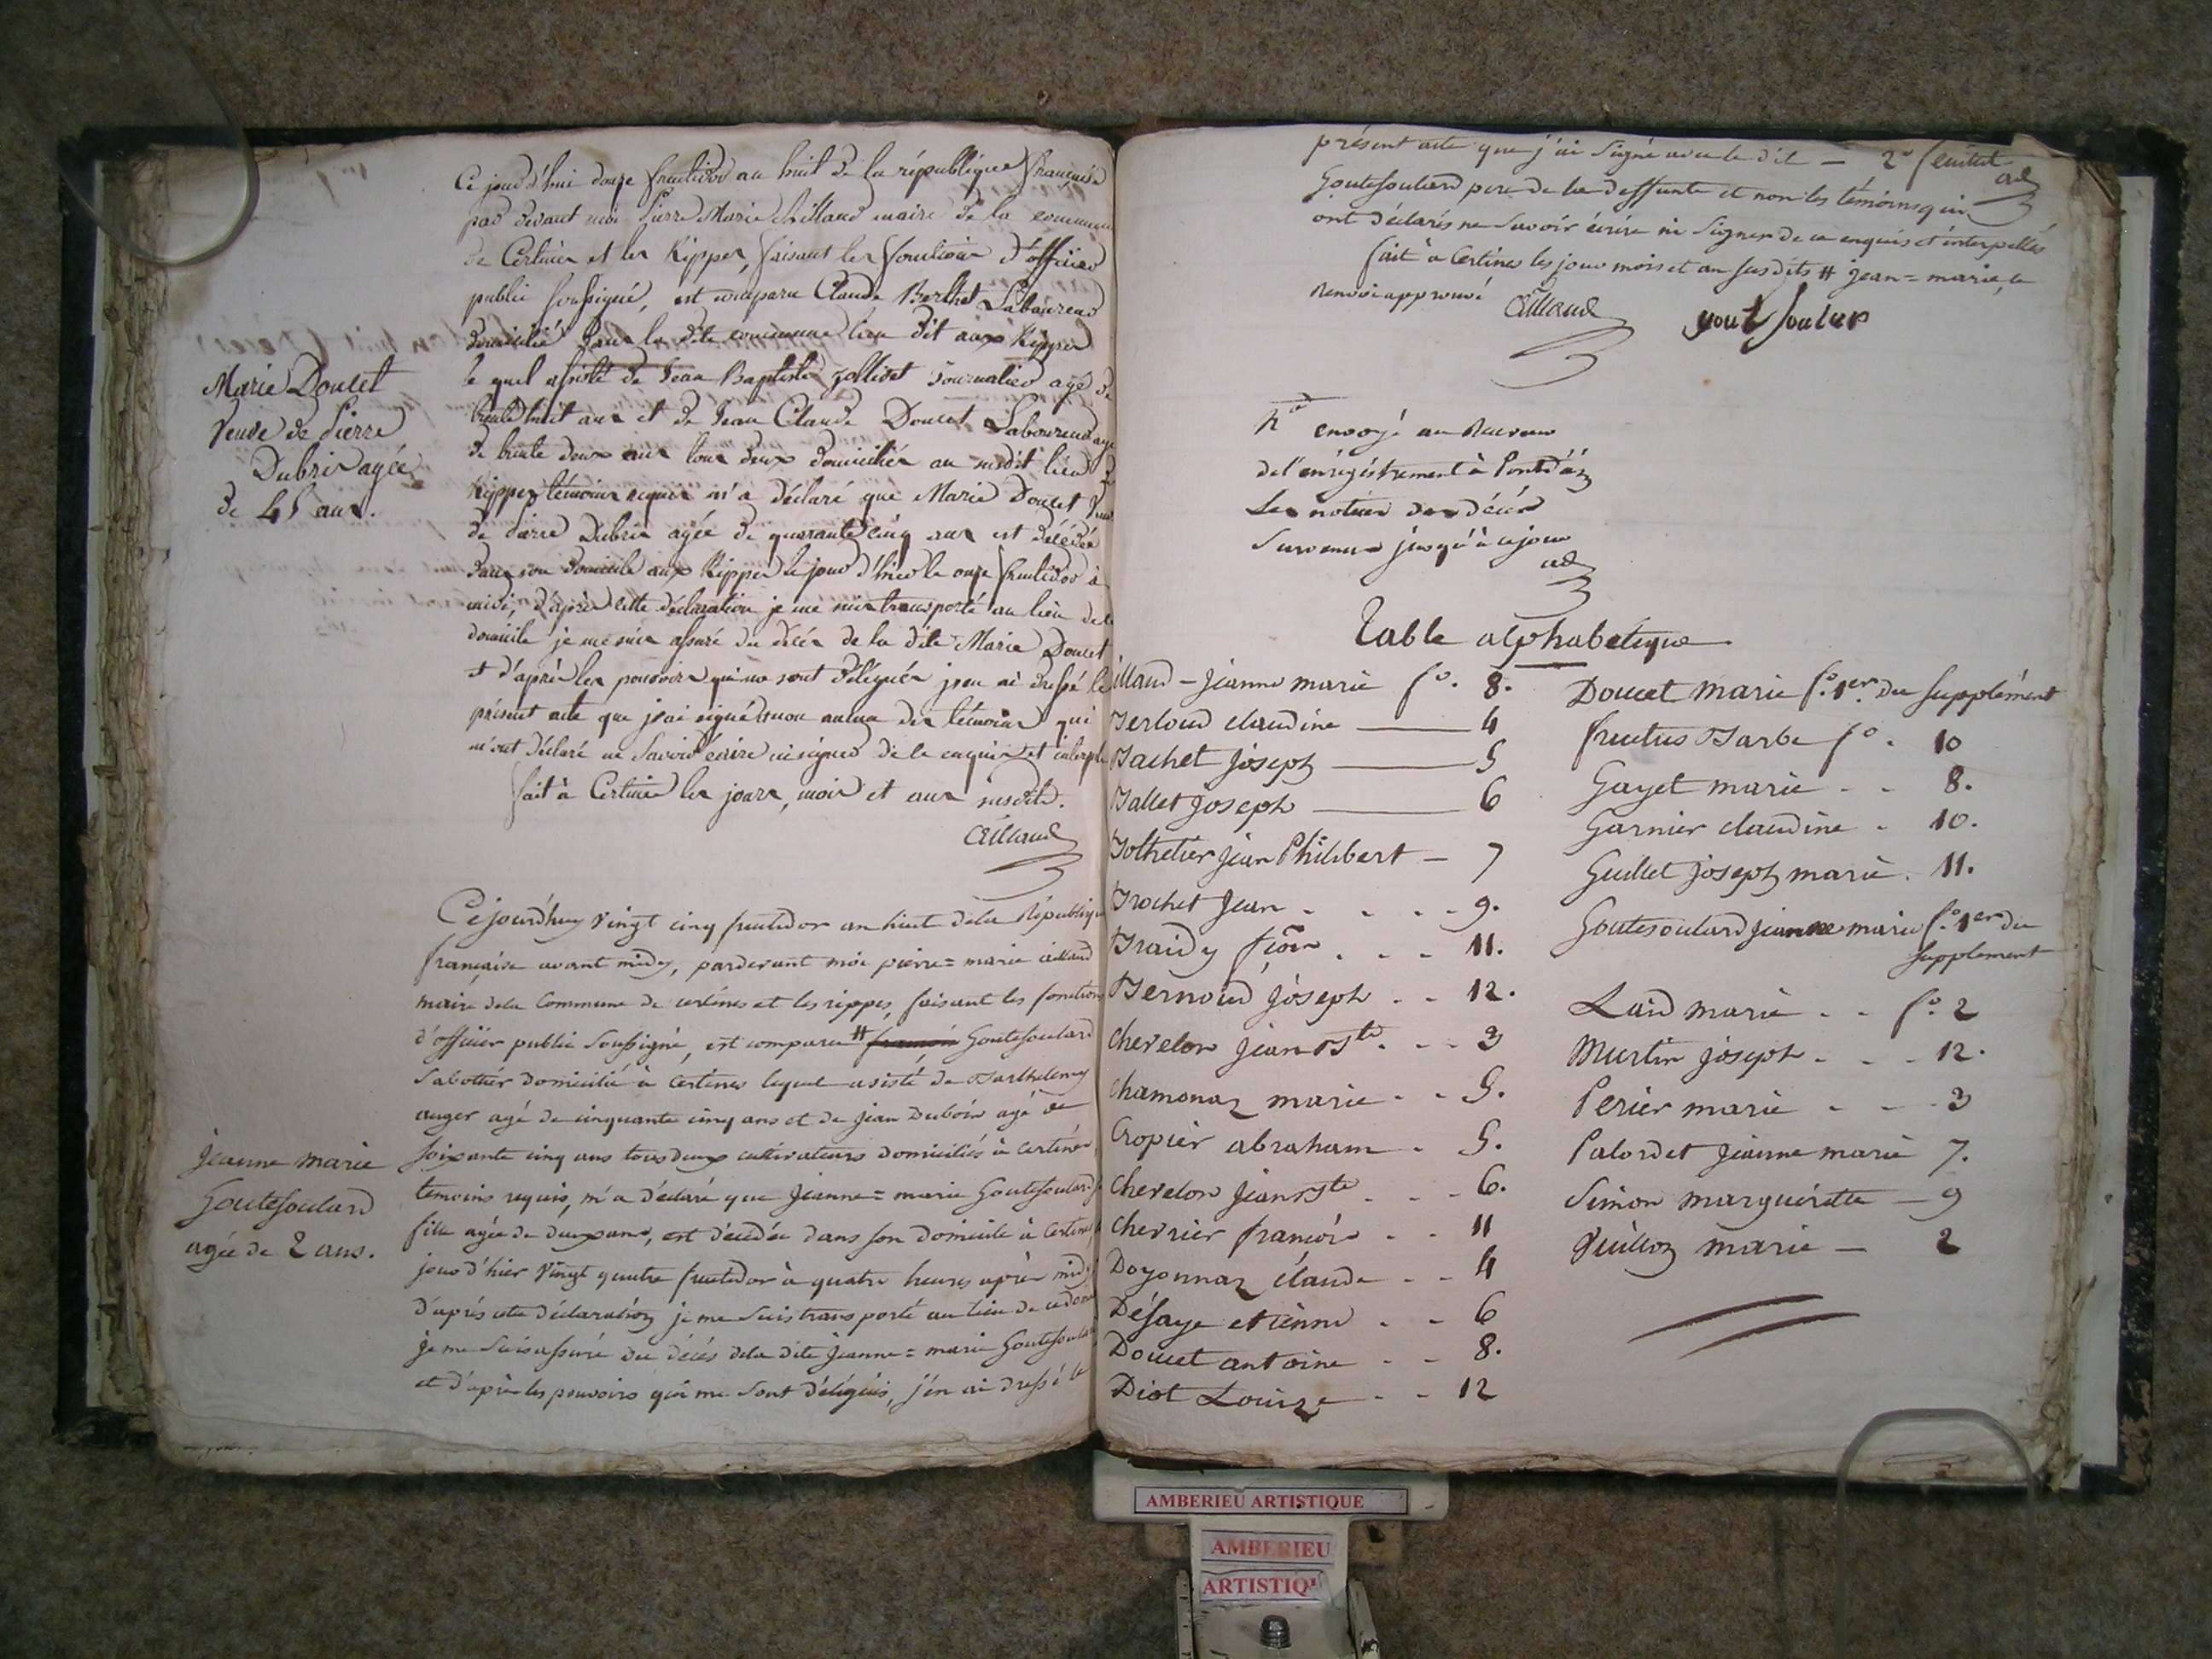 Ce jourd'hui douze fructidor an huit de la république française
par devant moi Pierre Marie Aillaud maire de la commune
de Certines et les Rippes, faisant les fonctions d'officier
public soussigné, est comparu Claude Berthet Laboureur
domicilié dans la dite commune lieu dit aux Rippes
le quel assisté de Jean Baptiste journalier agé de
trente huit ans et de Jean Claude Doucet Laboureur agé
de trente deux ans tous deux domiciliés au susdit lieu des
Rippes témoins requis m'a déclaré que Marie Doucet Veuve
de Pierre Dubris agée de quarante cinq ans est décédée
dans son domicile aux Rippes le jour d'hier le onze fructidor à
midi, d'après cette déclaration je me suis transporté au lieu de ce
domicile je me suis assuré du décès de la dite Marie Doucet
et d'après les pouvoirs qui me sont délégués j'en ai dressé le
présent acte que j'ai signé non aucun des témoins qui
m'ont déclaré ne savoir écrire ni signer de ce enquis et interpellé
fait à Certines les jours, mois et ans susdits.
Aillaud
Marie Doucet
Veuve de Pierre
Dubris agée
de 45 ans.
Cejourd'huy vingt cinq fructidor an huit dela République
française avant midy, pardevant moi pierre=marie aillaud
maire dela Commune de certines et les rippes, faisant les fonctions
d'officier public Soussigné, est comparu # françois Goutesoulard
Sabotier domicilié à certines lequel assisté de Barthelemy
auger agé de cinquante cinq ans et de jean Dubois agé de
soixante cinq ans tous deux cultivateurs domiciliés à certines
temoins requis, m'a déclaré que Jeanne=marie Goutesoulard
fille agée de deux ans, est décédée dans son domicile à Certines le
jour d'hier vingt quatre fructidor à quatre heures après midy
d'après cette déclaration je me suis transporté au lieu de ce domicile
je me suis assuré du décés dela dite Jeanne=marie Goutesoulard
et d'après les pouvoirs qui me sont délégués, j'en ai dressé le
jeanne marie
Goutesoulard
agée de 2 ans.
présent acte que j'ai signé avec le dit — 2e feuillet
Goutesoulard pere de la deffunte et non les témoins qui
ont déclarés ne savoir écrire ni signer de ce enquis et interpellés
fait à Certines les jour mois et an susdits # jean=marie, le
Renvoi approuvé Aillaud gout soular
envoyé au Bureau
de l'enrégistrement à Pontd'ain
les notices des décés
survenus jusqu'à ce jour
Table alphabetique
aillaud - jeanne marie fo. 8.
Berloud claudine — 4
Bachet joseph — 5
Ballet joseph — 6
Bolthelier jean Philibert — 7
Brochet jean . . . . 9.
Braidy fçois . . . 11.
Bernoud joseph . . 12.
chevelon jean Bte. . . 3
chamonaz marie . . 5.
Cropier abraham . 5.
chevelon jean Bte . . . 6.
chevrier françois . . 11
Doyonnaz claude . . 4
Désaye etienne . . 6
Doucet antoine . . 8.
Diot Louise . . 12
Doucet marie fo. 1er. du supplément
fructus Barbe fo. 10
Gayet marie . . 8.
Garnier claudine . 10.
Guillet joseph marie . 11.
Goutesoulard jeanne marie fo. 1er du
supplement
Laid marie . . fo. 2
Martin joseph . . . 12.
Perier marie . . . 3
Palordet jeanne marie 7.
Simon marguerite — 9
Vuilloz marie — 2
AMBERIEU ARTISTIQUE
AMBERIEU
ARTISTIQU